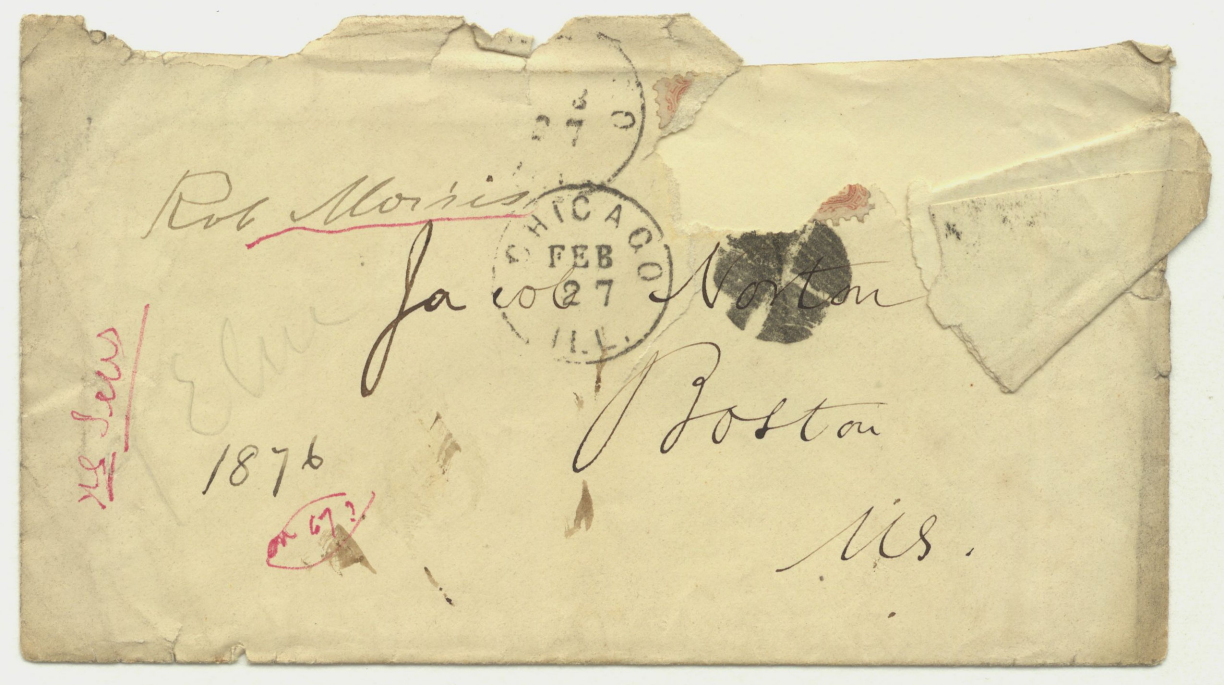 Rob Morris
CHICAGO
FEB
27
ILL.
Jacob Norton
Boston
Ms.
1876
27
or 67?